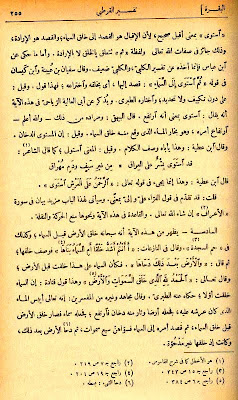 ٢٥٥ تفسير القرطبي [البقرة]
«استوى» بمعنى أقبل صحيح، لأن الإقبال هو القصد إلى خلق السماء، والقصد هو الإرادة،
وذلك جائز في صفات الله تعالى. ولفظة «ثم» تتعلق بالخلق لا بالإرادة. وأما ما حكى عن
ابن عباس فإنما أخذه عن تفسير الكلبي، والكلبي ضعيف. وقال سفيان بن عيينة وابن كيسان
في قوله « ثم استوى إلى السماء »: قصد إليها، أي بخلقه واختراعه، فهذا قول. وقيل:
على دون تكييف ولا تحديد، واختاره الطبري. ويذكر عن أبي العالية الرياحي في هذه الآية
أنه يقال: استوى بمعنى أنه ارتفع. قال البيهقي: ومراده من ذلك — والله أعلم —
ارتفاع أمره، وهو بخار الماء الذي وقع منه خلق السماء. وقيل: إن المستوي الدخان.
وقال ابن عطية: وهذا يأباه وصف الكلام. وقيل: المعنى استولى، كما قال الشاعر:
قد استوى بشر على العراق * من غير سيف ودم مهراق
قال ابن عطية: وهذا إنما يجيء في قوله تعالى: « الرحمن على العرش استوى ».
قلت: قد تقدم في قول الفراء «على وإلى بمعنى». وسيأتي لهذا الباب مزيد بيان في سورة
«الأعراف» إن شاء الله تعالى. والقاعدة في هذه الآية ونحوها منع الحركة والنقلة.
السادسة — يظهر من هذه الآية أنه سبحانه خلق الأرض قبل السماء، وكذلك
في «حم السجدة». وقال في النازعات: « أأنتم أشد خلقا أم السماء بناها » فوصف خلقها،
ثم قال: « والأرض بعد ذلك دحاها ». فكأن السماء على هذا خلقت قبل الأرض،
وقال تعالى: « الحمد لله الذي خلق السموات والأرض » وهذا قول قتادة: إن السماء
خلقت أولا، حكاه عنه الطبري. وقال مجاهد وغيره من المفسرين: إنه تعالى أيبس الماء
الذي كان عرشه عليه فجعله أرضا وثار منه دخان فارتفع، فجعله سماء فصار خلق الأرض
قبل خلق السماء، ثم قصد أمره إلى السماء فسواهن سبع سموات، ثم دحا الأرض بعد ذلك،
وكانت إذ خلقها غير مدحوة.
(١) هو الأخطل كما في شرح القاموس. (٢) راجع ج ٧ ص ٢١٩
(٣) راجع ج ١٥ ص ٣٤٣ (٤) راجع ج ١٩ ص ٢٠١
(٥) راجع ج ٦ ص ٣٨٤ (٦) دحا الشيء: بسطه.